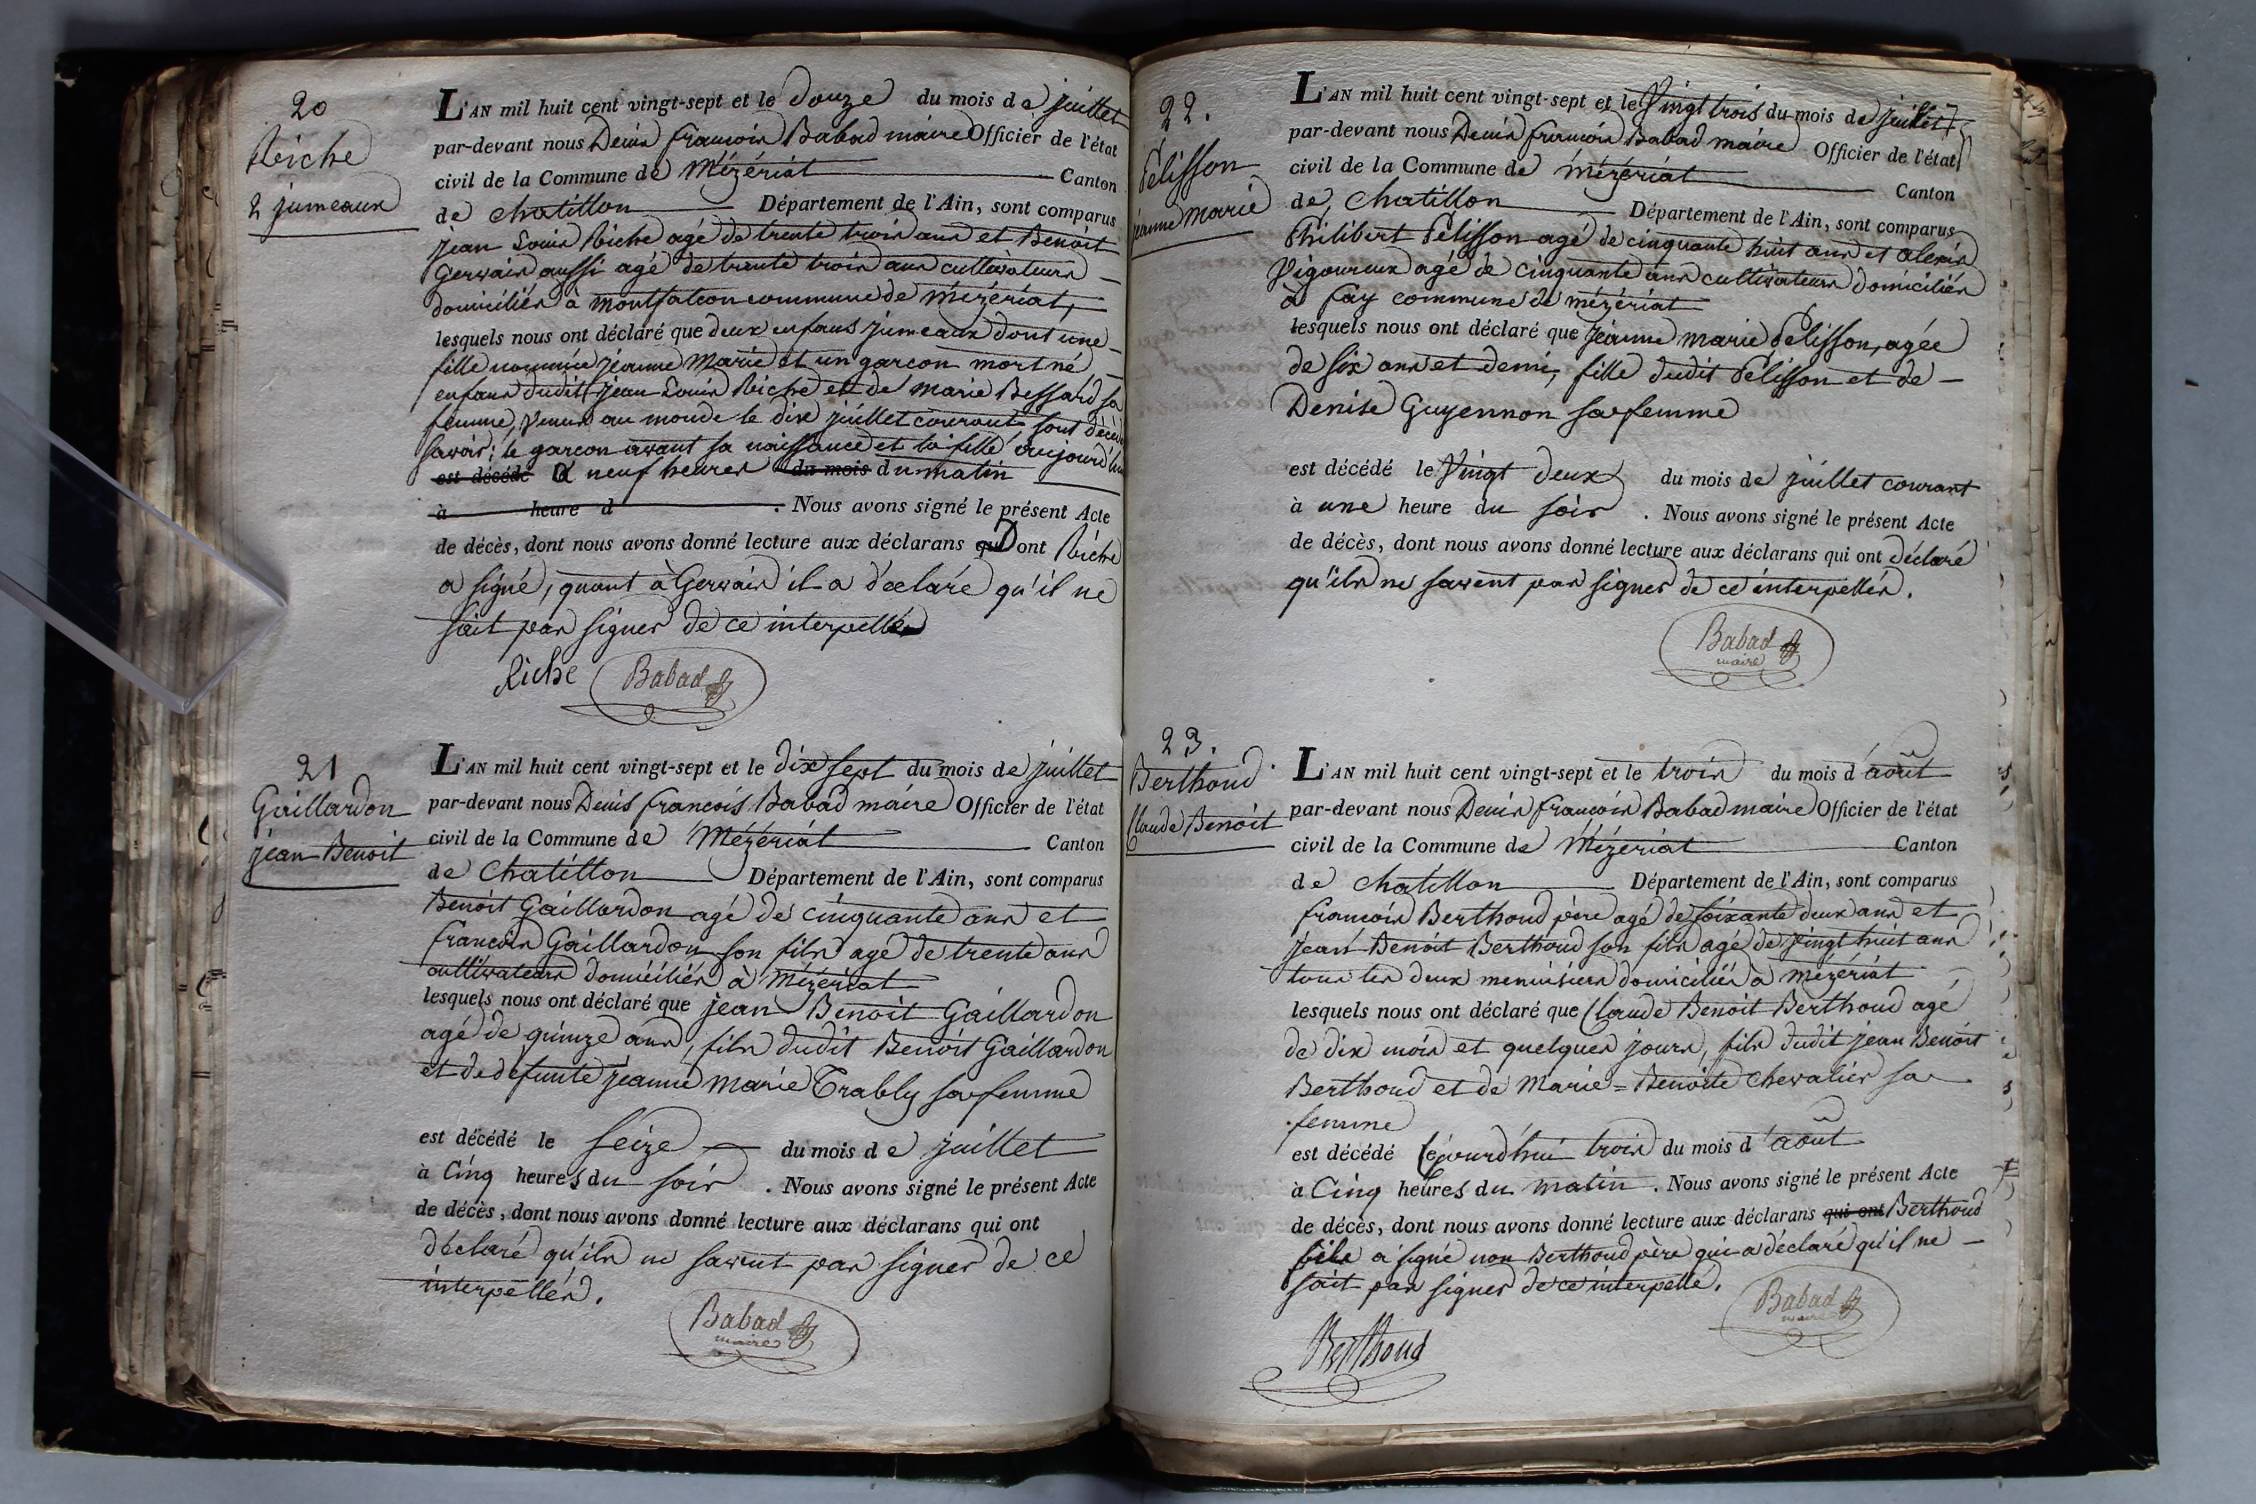 20
Riche
2 jumeaux
L'AN mil huit cent vingt-sept et le douze du mois de juillet
par-devant nous Denis françois Babad maire Officier de l'état
civil de la Commune de Mézériat Canton
de chatillon Département de l'Ain, sont comparus
jean Louis Riche agé de trente trois ans et Benoit
Gervais aussi agé de trente trois ans cultivateurs
domiciliés à montfalcon commune de mézériat,
lesquels nous ont déclaré que deux enfans jumeaux dont une
fille nommée jeanne Marie et un garcon mort né
enfans dudit jean Louis Riche et de marie Bessard sa
femme, venus au monde le dix juillet courant sont décédés
savoir; le garcon avant sa naissance et la fille aujourd'hui
est décédé à neuf heures du mois du matin
à heure d . Nous avons signé le présent Acte
de décès, dont nous avons donné lecture aux déclarans qui Dont Riche
a signé, quant à Gervais il a déclaré qu'il ne
sait pas signer de ce interpellé
Riche Babad
21
Gaillardon
jean Benoit
L'AN mil huit cent vingt-sept et le dix sept du mois de juillet
par-devant nous Denis françois Babad maire Officier de l'état
civil de la Commune de Mézériat Canton
de Chatillon Département de l'Ain, sont comparus
Benoit Gaillardon agé de cinquante ans et
françois Gaillardon son fils agé de trente ans
cultivateurs domiciliés à Mézériat
lesquels nous ont déclaré que jean Benoit Gaillardon
agé de quinze ans, fils dudit Benoit Gaillardon
et de défunte jeanne marie Trably sa femme
est décédé le seize du mois de juillet
à Cinq heures du soir . Nous avons signé le présent Acte
de décès, dont nous avons donné lecture aux déclarans qui ont
déclaré qu'ils ne savent pas signer de ce
interpellés.
Babad
maire
22.
Pélisson
jeanne marie
L'AN mil huit cent vingt-sept et le Vingt trois du mois de juillet
par-devant nous Denis françois Babad maire Officier de l'état
civil de la Commune de mézériat Canton
de chatillon Département de l'Ain, sont comparus
Philibert Pélisson agé de cinquante huit ans et alexis
Vigoureux agé de cinquante ans cultivateurs domiciliés
à fay commune de mézériat
lesquels nous ont déclaré que jeanne marie Pélisson, agée
de six ans et demi, fille dudit Pélisson et de
Denise Guyennon sa femme
est décédé le Vingt deux du mois de juillet courant
à une heure du soir . Nous avons signé le présent Acte
de décès, dont nous avons donné lecture aux déclarans qui ont déclaré
qu'ils ne savent pas signer de ce interpellés.
Babad
maire
23.
Berthoud
Claude Benoit
L'AN mil huit cent vingt-sept et le trois du mois d'août
par-devant nous Denis françois Babad maire Officier de l'état
civil de la Commune de Mézériat Canton
de chatillon Département de l'Ain, sont comparus
françois Berthoud père agé de soixante deux ans et
jean Benoit Berthoud son fils agé de vingt huit ans
tous les deux menuisiers domiciliés à mézériat
lesquels nous ont déclaré que Claude Benoit Berthoud agé
de dix mois et quelques jours, fils dudit jean Benoit
Berthoud et de Marie=Benoite Chevalier sa
femme
est décédé cejourd'hui trois du mois d'août
à Cinq heures du matin . Nous avons signé le présent Acte
de décès, dont nous avons donné lecture aux déclarans qui ont Berthoud
fils a signé non Berthoud père qui a déclaré qu'il ne
sait pas signer de ce interpellé.
Babad
maire
Berthoud